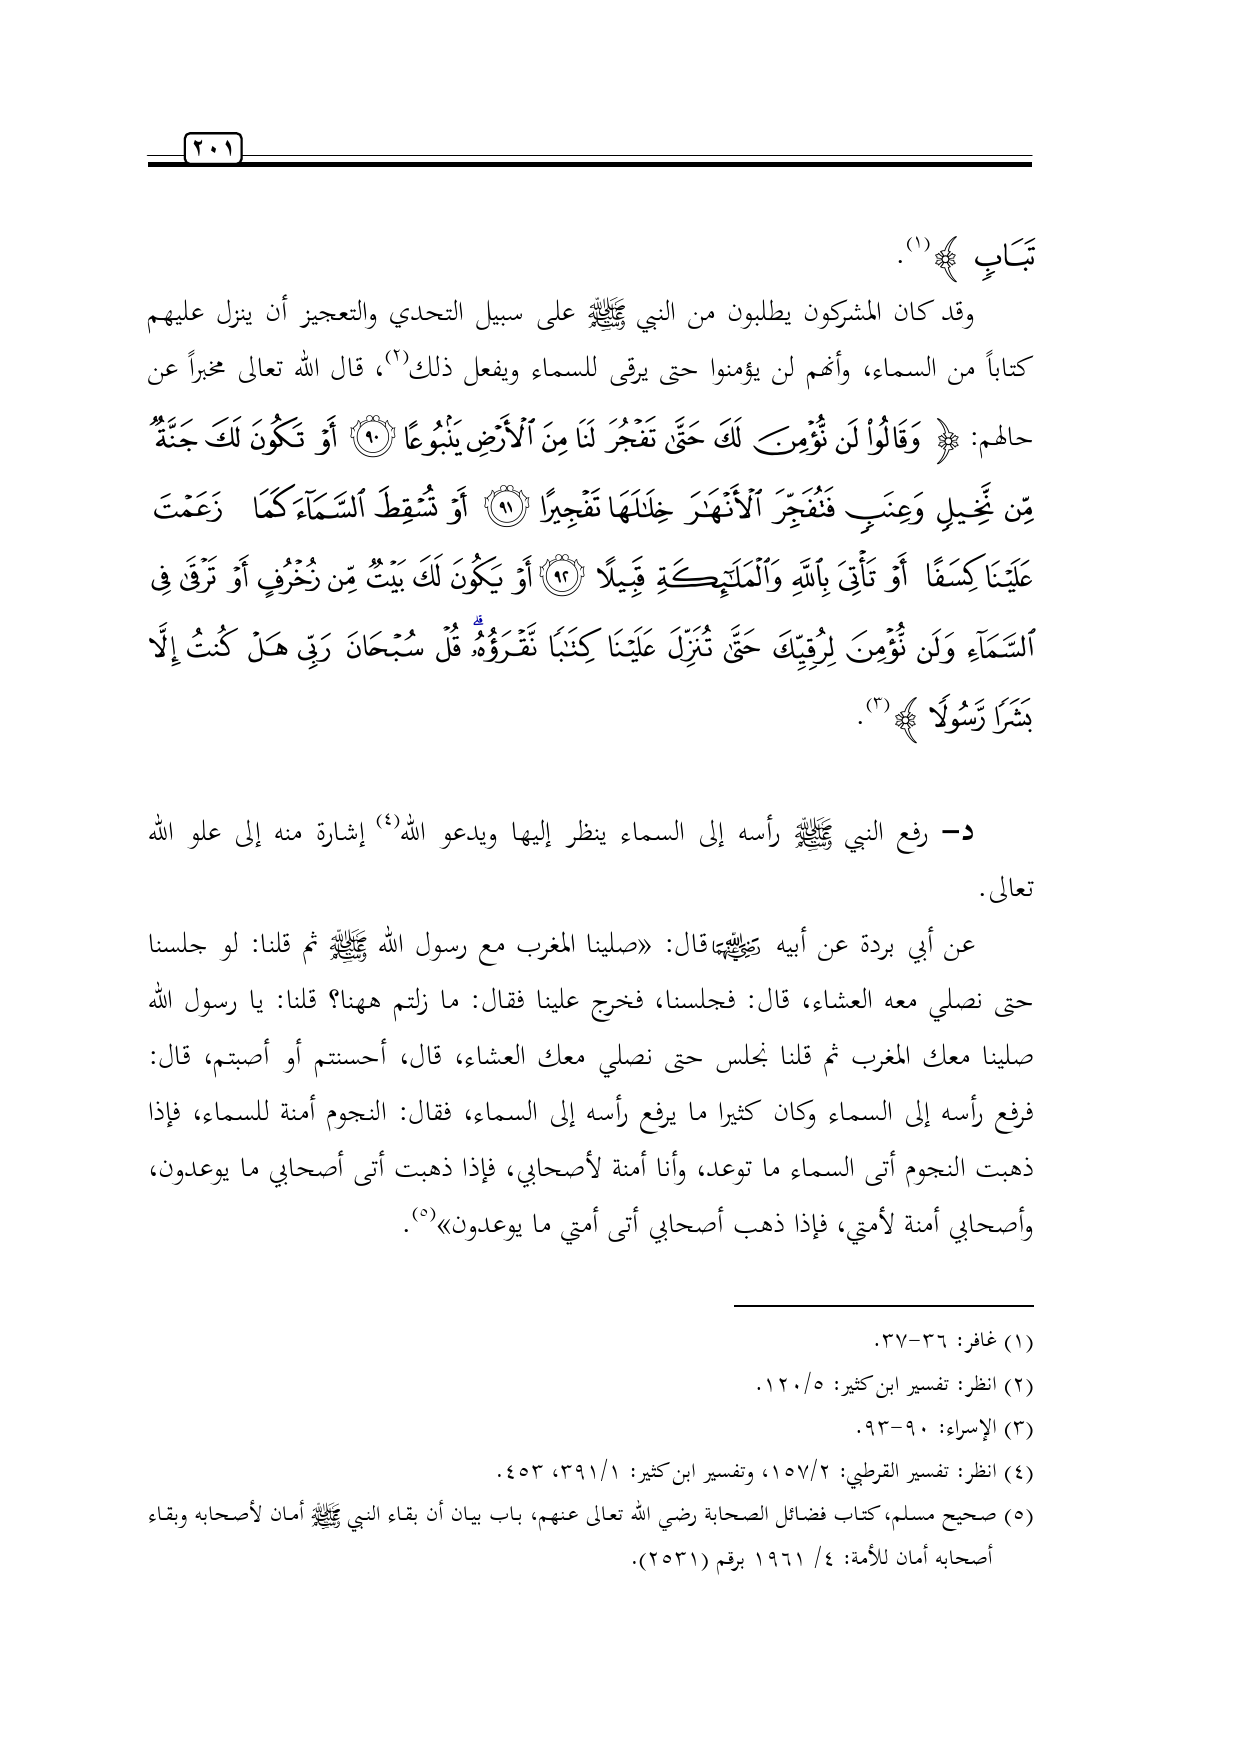 ٢٠١
تَبَابٍ ﴾(١).
وقد كان المشركون يطلبون من النبي ﷺ على سبيل التحدي والتعجيز أن ينزل عليهم
كتاباً من السماء، وأنهم لن يؤمنوا حتى يرقى للسماء ويفعل ذلك(٢)، قال الله تعالى مخبراً عن
حالهم: ﴿ وَقَالُوا۟ لَن نُّؤْمِنَ لَكَ حَتَّىٰ تَفْجُرَ لَنَا مِنَ ٱلْأَرْضِ يَنۢبُوعًا ۝٩٠ أَوْ تَكُونَ لَكَ جَنَّةٌ
مِّن نَّخِيلٍ وَعِنَبٍ فَتُفَجِّرَ ٱلْأَنْهَٰرَ خِلَٰلَهَا تَفْجِيرًا ۝٩١ أَوْ تُسْقِطَ ٱلسَّمَآءَ كَمَا زَعَمْتَ
عَلَيْنَا كِسَفًا أَوْ تَأْتِىَ بِٱللَّهِ وَٱلْمَلَٰٓئِكَةِ قَبِيلًا ۝٩٢ أَوْ يَكُونَ لَكَ بَيْتٌ مِّن زُخْرُفٍ أَوْ تَرْقَىٰ فِى
ٱلسَّمَآءِ وَلَن نُّؤْمِنَ لِرُقِيِّكَ حَتَّىٰ تُنَزِّلَ عَلَيْنَا كِتَٰبًا نَّقْرَؤُهُۥ ۗ قُلْ سُبْحَانَ رَبِّى هَلْ كُنتُ إِلَّا
بَشَرًا رَّسُولًا ﴾(٣).
د– رفع النبي ﷺ رأسه إلى السماء ينظر إليها ويدعو الله(٤) إشارة منه إلى علو الله
تعالى.
عن أبي بردة عن أبيه رضي الله عنهما قال: «صلينا المغرب مع رسول الله ﷺ ثم قلنا: لو جلسنا
حتى نصلي معه العشاء، قال: فجلسنا، فخرج علينا فقال: ما زلتم ههنا؟ قلنا: يا رسول الله
صلينا معك المغرب ثم قلنا نجلس حتى نصلي معك العشاء، قال، أحسنتم أو أصبتم، قال:
فرفع رأسه إلى السماء وكان كثيرا ما يرفع رأسه إلى السماء، فقال: النجوم أمنة للسماء، فإذا
ذهبت النجوم أتى السماء ما توعد، وأنا أمنة لأصحابي، فإذا ذهبت أتى أصحابي ما يوعدون،
وأصحابي أمنة لأمتي، فإذا ذهب أصحابي أتى أمتي ما يوعدون»(٥).
(١) غافر: ٣٦-٣٧.
(٢) انظر: تفسير ابن كثير: ١٢٠/٥.
(٣) الإسراء: ٩٠-٩٣.
(٤) انظر: تفسير القرطبي: ١٥٧/٢، وتفسير ابن كثير: ٣٩١/١، ٤٥٣.
(٥) صحيح مسلم، كتاب فضائل الصحابة رضي الله تعالى عنهم، باب بيان أن بقاء النبي ﷺ أمان لأصحابه وبقاء
أصحابه أمان للأمة: ٤/ ١٩٦١ برقم (٢٥٣١).